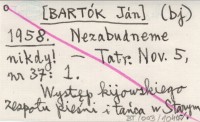 [BARTÓK Ján] (bj)
1958. Nezabudneme
nikdy! – Tatr. Nov. 5,
nr 37: 1.
Występ kijowskiego
zespołu pieśni i tańca w Starym